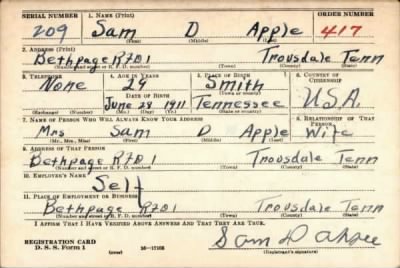 SERIAL NUMBER 1. NAME (Print) ORDER NUMBER
209 Sam D Apple 417
(First) (Middle) (Last)
2. ADDRESS (Print)
Bethpage R7D1 Trousdale Tenn
(Number and street or R. F. D. number) (Town) (County) (State)
3. TELEPHONE 4. AGE IN YEARS 5. PLACE OF BIRTH 6. COUNTRY OF CITIZENSHIP
None 29 Smith
DATE OF BIRTH (Town or county)
June 28 1911 Tennessee U.S.A.
(Exchange) (Number) (Mo.) (Day) (Yr.) (State or country)
7. NAME OF PERSON WHO WILL ALWAYS KNOW YOUR ADDRESS 8. RELATIONSHIP OF THAT PERSON
Mrs Sam D Apple Wife
(Mr., Mrs., Miss) (First) (Middle) (Last)
9. ADDRESS OF THAT PERSON
Bethpage R7D1 Trousdale Tenn
(Number and street or R. F. D. number) (Town) (County) (State)
10. EMPLOYER'S NAME
Self
11. PLACE OF EMPLOYMENT OR BUSINESS
Bethpage R7D1 Trousdale Tenn
(Number and street or R. F. D. number) (Town) (County) (State)
I AFFIRM THAT I HAVE VERIFIED ABOVE ANSWERS AND THAT THEY ARE TRUE.
REGISTRATION CARD
D. S. S. Form 1 16—17105 Sam D Apple
(Registrant's signature)